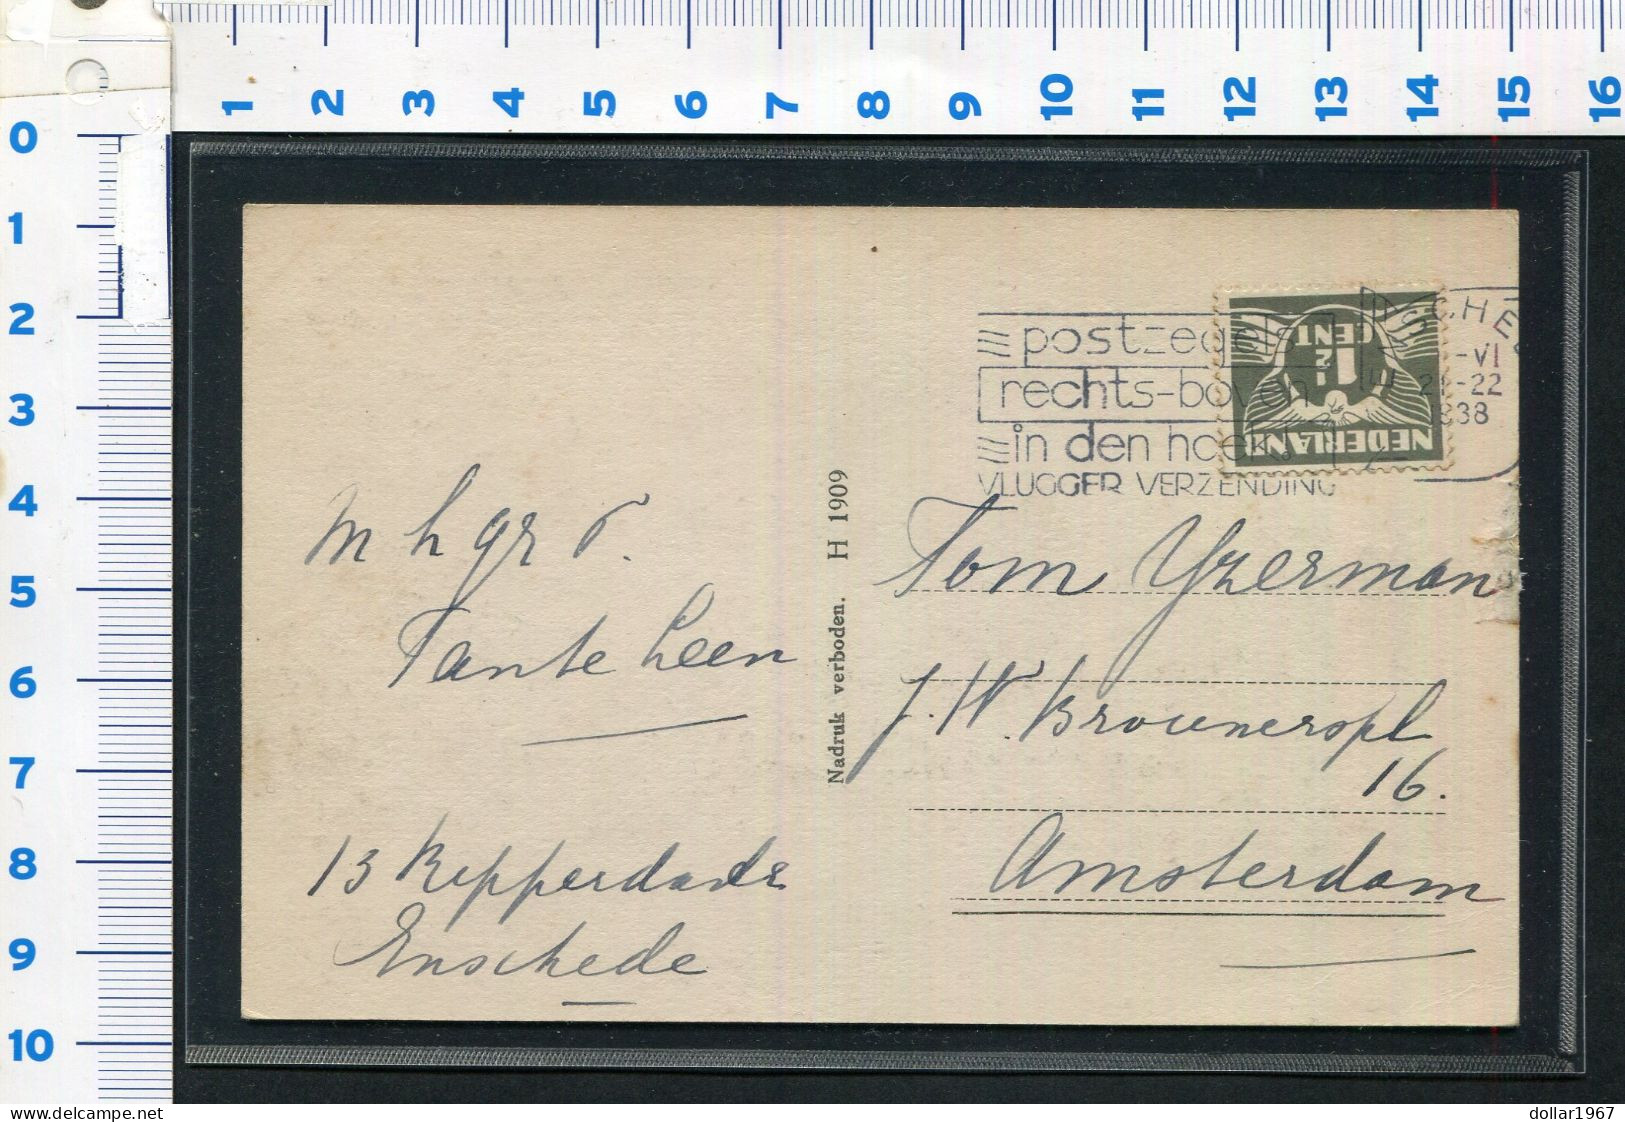 1 2 3 4 5 6 7 8 9 10 11 12 13 14 15 16
0
1
2
3
4
5
6
7
8
9
10
postzegels
rechts-boven
in den hoek
VLUGGER VERZENDING
ENSCHE
-VI
21-22
1938
1½
CENT
NEDERLAND
m h gr v.
Tante Leen
13
Enschede
Nadruk verboden. H 1909
Tom Yzerman
J. W. Brouwerspl
16.
Amsterdam
delcampe.net
dollar1967